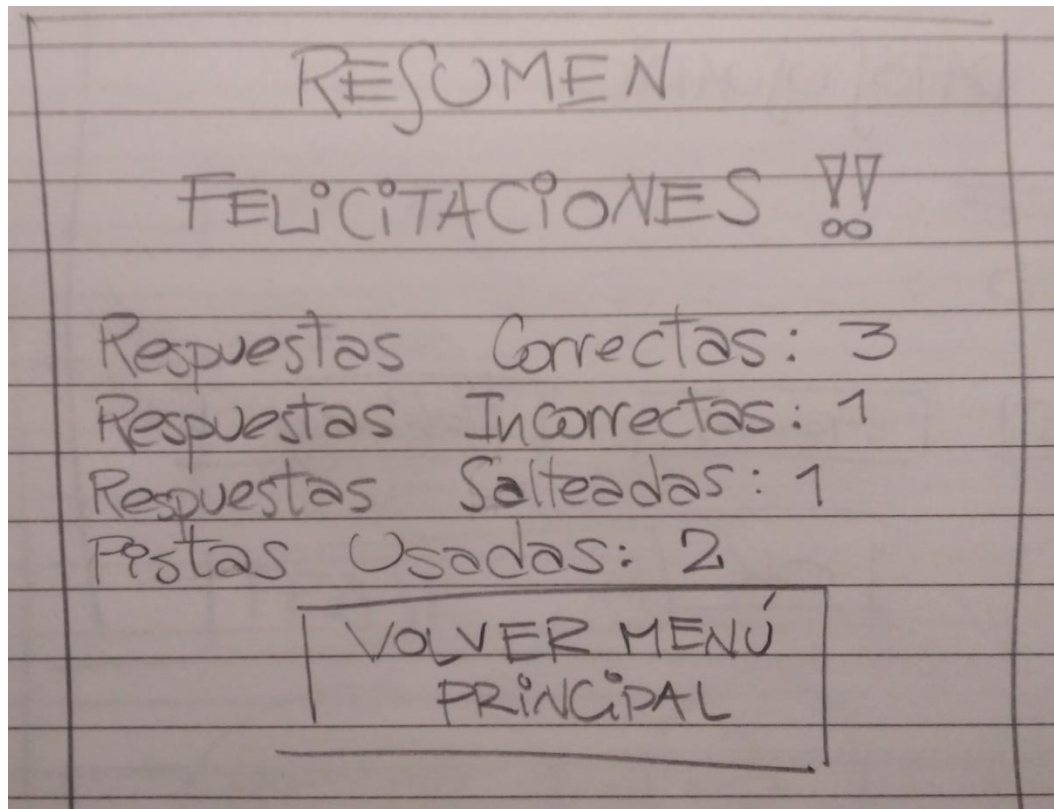 RESUMEN
FELICITACIONES !!
Respuestas Correctas: 3
Respuestas Incorrectas: 1
Respuestas Salteadas: 1
Pistas Usadas: 2
VOLVER MENÚ
PRINCIPAL